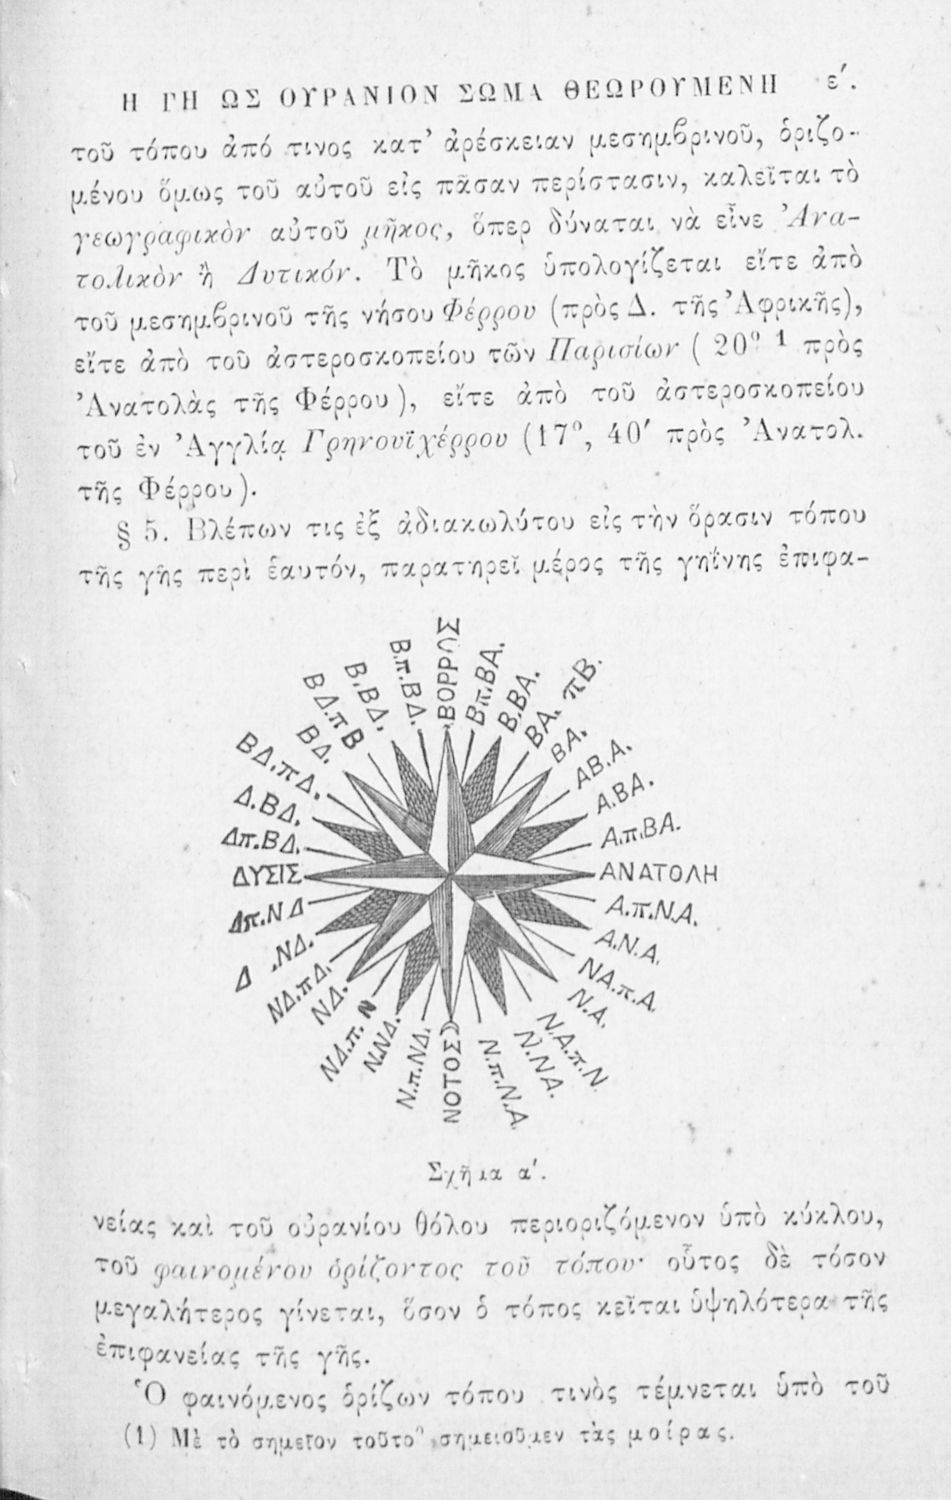 Η ΓΗ ΩΣ ΟΥΡΑΝΙΟΝ ΣΩΜΑ ΘΕΩΡΟΥΜΕΝΗ ε΄.
τοῦ τόπου ἀπό τινος κατ’ ἀρέσκειαν μεσημβρινοῦ, ὁριζο-
μένου ὅμως τοῦ αὐτοῦ εἰς πᾶσαν περίστασιν, καλεῖται τὸ
γεωγραφικὸν αὐτοῦ μῆκος, ὅπερ δύναται νὰ εἶνε Ἀνα-
τολικὸν ἢ Δυτικόν. Τὸ μῆκος ὑπολογίζεται εἴτε ἀπὸ
τοῦ μεσημβρινοῦ τῆς νήσου Φέρρου (πρὸς Δ. τῆς Ἀφρικῆς),
εἴτε ἀπὸ τοῦ ἀστεροσκοπείου τῶν Παρισίων ( 20° ¹ πρὸς
Ἀνατολὰς τῆς Φέρρου ), εἴτε ἀπὸ τοῦ ἀστεροσκοπείου
τοῦ ἐν Ἀγγλίᾳ Γρηνουϊχέρρου (17°, 40′ πρὸς Ἀνατολ.
τῆς Φέρρου ).
§ 5. Βλέπων τις ἐξ ἀδιακωλύτου εἰς τὴν ὅρασιν τόπου
τῆς γῆς περὶ ἑαυτόν, παρατηρεῖ μέρος τῆς γηΐνης ἐπιφα-
ΒΟΡΡΑΣ
Βπ.ΒΑ.
Β.ΒΑ.
ΒΑ. πΒ.
ΒΑ.
ΑΒ.Α.
Α.ΒΑ.
Α.π.ΒΑ.
ΑΝΑΤΟΛΗ
Α.π.Ν.Α.
Α.Ν.Α.
ΝΑ.π.Α.
Ν.Α.
Ν.Α.π.Ν
Ν.ΝΑ.
Ν.π.Ν.Α.
ΝΟΤΟΣ
Ν.π.ΝΔ.
Ν.ΝΔ.
ΝΔ.π.Ν
ΝΔ.
ΝΔ.πΔ.
Δ .ΝΔ.
Δπ.ΝΔ
ΔΥΣΙΣ
Δπ.ΒΔ.
Δ.ΒΔ.
ΒΔ.πΔ.
ΒΔ.
ΒΔ.πΒ
Β.ΒΔ.
Β.π.ΒΔ.
Σχῆμα α΄.
νείας καὶ τοῦ οὐρανίου θόλου περιοριζόμενον ὑπὸ κύκλου,
τοῦ φαινομένου ὁρίζοντος τοῦ τόπου· οὗτος δὲ τόσον
μεγαλήτερος γίνεται, ὅσον ὁ τόπος κεῖται ὑψηλότερα τῆς
ἐπιφανείας τῆς γῆς.
Ὁ φαινόμενος ὁρίζων τόπου τινὸς τέμνεται ὑπὸ τοῦ
(1) Μὲ τὸ σημεῖον τοῦτο ° σημειοῦμεν τὰς μοίρας.